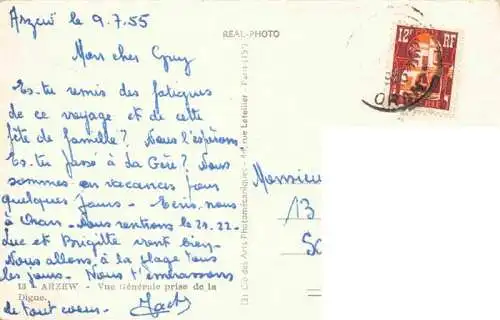 Arzew le 9.7.55
REAL-PHOTO
12F RF
ORAN
Mon cher Guy
Es-tu remis des fatigues
de ce voyage et de cette
fête de famille? Nous l'espérons.
Es-tu passé à la Gère? Nous
sommes en vacances pour
quelques jours. Ecris nous
à Oran. Nous rentrons le 21.22.
Luc et Brigitte vont bien.
Nous allons à la plage tous
les jours. Nous t'embrassons
13 - ARZEW - Vue Générale prise de la
Digue.
de tout coeur.
(2) Cie des Arts Photomécaniques - rue Letellier - Paris (15e)
Monsieur
13